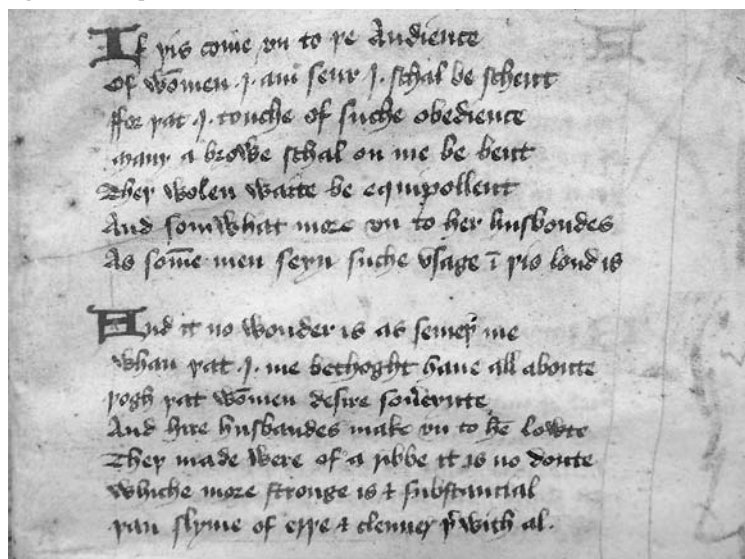 If þis come vn to þe Audience
Of wōmen .I. am seur .I. schal be schent
ffor þat .I. touche of suche obedience
Many a browe schal on me be bent
They wolen waite be equipollent
And somwhat more vn to her husbondes
As som̄e men seyn suche vsage ī þis lond is
And it no wonder is as semeþ me
Whan þat .I. me bethoght haue all aboute
Þogh þat wōmen desire souereinte
And hire husbandes make vn to hē lowte
They made were of a ribbe it is no doute
Whiche more stronge is & substancial
Þan slyme of erþe & clenner þ with al.